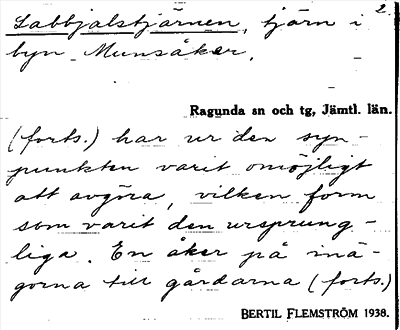 2.
Labbjalstjärnen, tjärn i
byn Munsåker.
Ragunda sn och tg, Jämtl. län.
(forts.) har ur den syn-
punkten varit omöjligt
att avgöra, vilken form
som varit den ursprung-
liga. En åker på mä-
gorna till gårdarna (forts.)
BERTIL FLEMSTRÖM 1938.